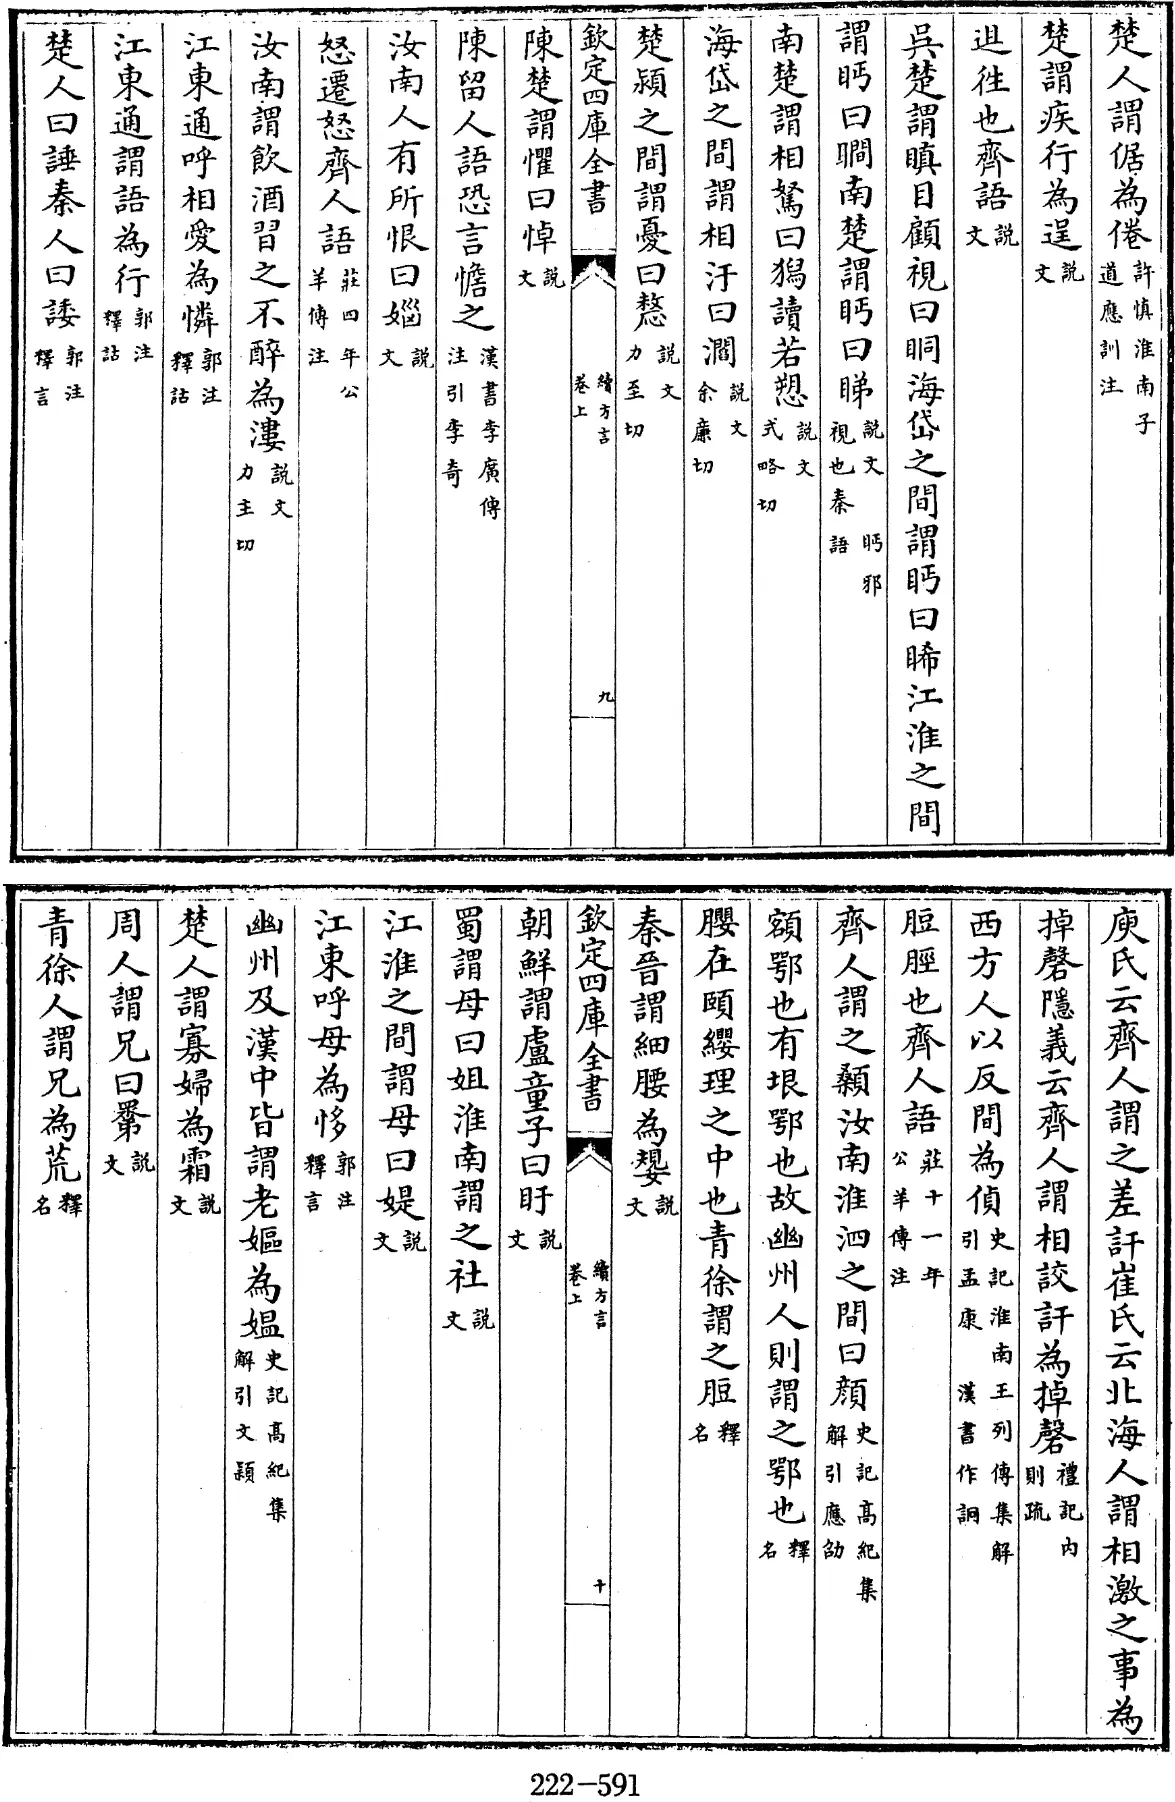 楚人謂倨為倦許慎淮南子道應訓注
楚謂疾行為逞說文
䢐徃也齊語說文
吳楚謂瞋目顧視曰眮海岱之間謂眄曰睎江淮之間
謂眄曰瞷南楚謂眄曰睇說文眄邪視也秦語
南楚謂相驚曰獡讀若愬說文式略切
海岱之間謂相汙曰濶說文余廉切
楚潁之間謂憂曰㦒說文力至切
欽定四庫全書
續方言卷上
九
陳楚謂懼曰悼說文
陳留人語恐言憺之漢書李廣傳注引李奇
汝南人有所恨曰媼說文
怒遷怒齊人語莊四年公羊傳注
汝南謂飲酒習之不醉為漊說文力主切
江東通呼相愛為憐郭注釋詁
江東通謂語為行郭注釋詁
楚人曰諈秦人曰諉郭注釋言
庾氏云齊人謂之差訐崔氏云北海人謂相激之事為
掉磬隱義云齊人謂相詨訐為掉磬禮記內則疏
西方人以反間為偵史記淮南王列傳集解引孟康漢書作詗
脰脛也齊人語莊十一年公羊傳注
齊人謂之顙汝南淮泗之間曰顏史記高紀集解引應劭
額鄂也有垠鄂也故幽州人則謂之鄂也釋名
䐜在頤纓理之中也青徐謂之脰釋名
秦晉謂細腰為嫢說文
欽定四庫全書
續方言卷上
十
朝鮮謂盧童子曰盱說文
蜀謂母曰姐淮南謂之社說文
江淮之間謂母曰媞說文
江東呼母為恀郭注釋言
幽州及漢中皆謂老嫗為媼史記高紀集解引文穎
楚人謂寡婦為霜說文
周人謂兄曰䍁說文
青徐人謂兄為荒釋名
222-591